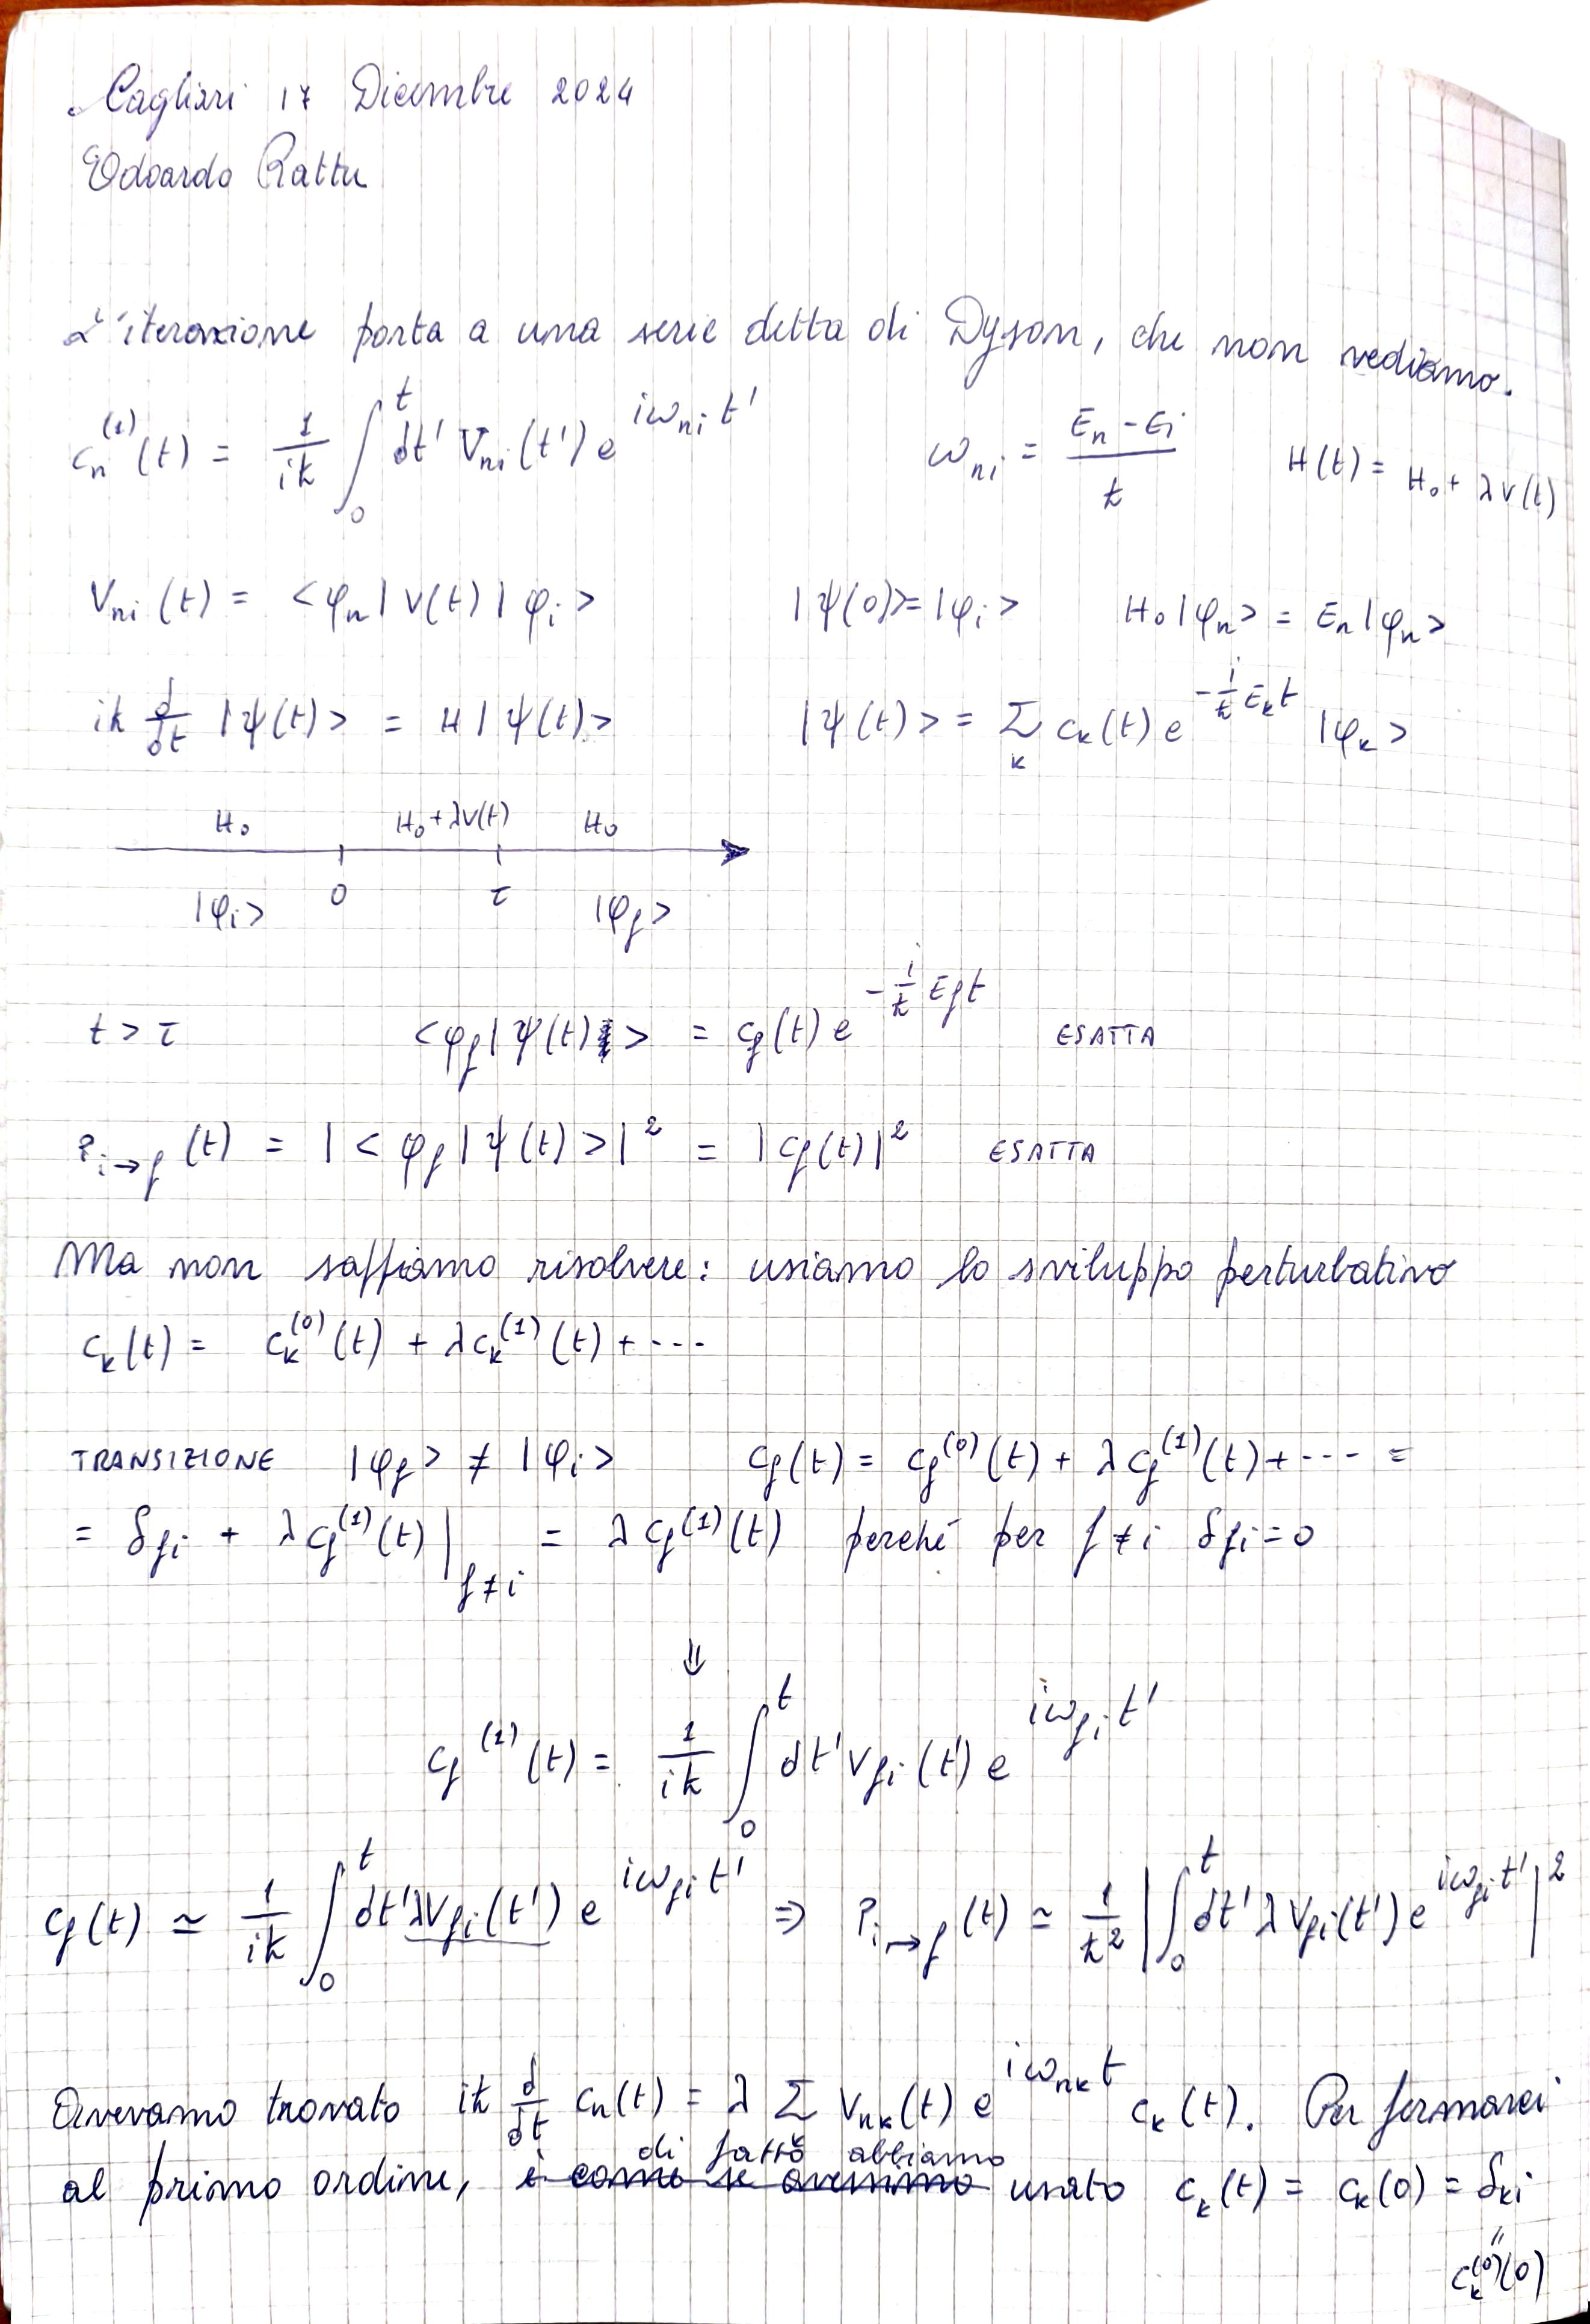 Cagliari 17 Dicembre 2024
Edoardo Rattu
L'iterazione porta a una serie detta di Dyson, che non vediamo.
cₙ⁽¹⁾(t) = 1/(iħ) ∫₀ᵗ dt' Vₙᵢ(t') e^{iωₙᵢt'}    ωₙᵢ = (Eₙ - Eᵢ)/ħ    H(t) = H₀ + λV(t)
Vₙᵢ(t) = <φₙ|V(t)|φᵢ>    |ψ(0)> = |φᵢ>    H₀|φₙ> = Eₙ|φₙ>
iħ d/dt |ψ(t)> = H|ψ(t)>    |ψ(t)> = Σ_k c_k(t) e^{-i/ħ E_k t} |φ_k>
H₀    H₀ + λV(t)    H₀
|φᵢ>    0    τ    |φ_f>
t > τ    <φ_f|ψ(t)> = c_f(t) e^{-i/ħ E_f t}    ESATTA
P_{i→f}(t) = |<φ_f|ψ(t)>|² = |c_f(t)|²    ESATTA
Ma non sappiamo risolvere: usiamo lo sviluppo perturbativo
c_k(t) = c_k⁽⁰⁾(t) + λc_k⁽¹⁾(t) + ---
TRANSIZIONE    |φ_f> ≠ |φᵢ>    c_f(t) = c_f⁽⁰⁾(t) + λc_f⁽¹⁾(t) + --- =
= δ_{fi} + λc_f⁽¹⁾(t)|_{f≠i} = λc_f⁽¹⁾(t) perché per f ≠ i δ_{fi} = 0
⇓
c_f⁽¹⁾(t) = 1/(iħ) ∫₀ᵗ dt' V_{fi}(t') e^{iω_{fi}t'}
c_f(t) ≃ 1/(iħ) ∫₀ᵗ dt' λV_{fi}(t') e^{iω_{fi}t'} ⇒ P_{i→f}(t) ≃ 1/ħ² |∫₀ᵗ dt' λV_{fi}(t') e^{iω_{fi}t'}|²
Avevamo trovato iħ d/dt cₙ(t) = λ Σ_k V_{nk}(t) e^{iω_{nk}t} c_k(t). Per fermarci
di fatto abbiamo
al primo ordine, è come se avessimo usato c_k(t) = c_k(0) = δ_{ki}
"
c_k⁽⁰⁾(0)